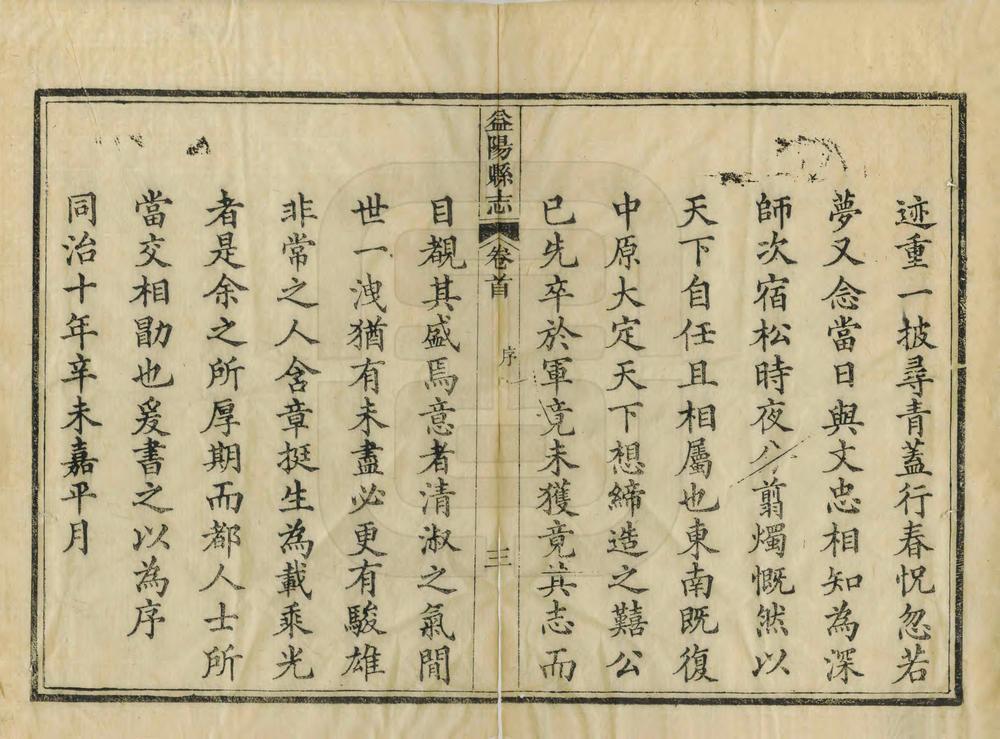 迹重一披尋青蓋行春怳忽若
夢又念當日與文忠相知為深
師次宿松時夜分剪燭慨然以
天下自任且相屬也東南既復
中原大定天下想締造之囏公
已先卒於軍竟未獲竟其志而
益陽縣志
卷首
序
三
目覩其盛焉意者清淑之氣閒
世一洩猶有未盡必更有駿雄
非常之人含章挺生為載乘光
者是余之所厚期而都人士所
當交相勖也爰書之以為序
同治十年辛未嘉平月